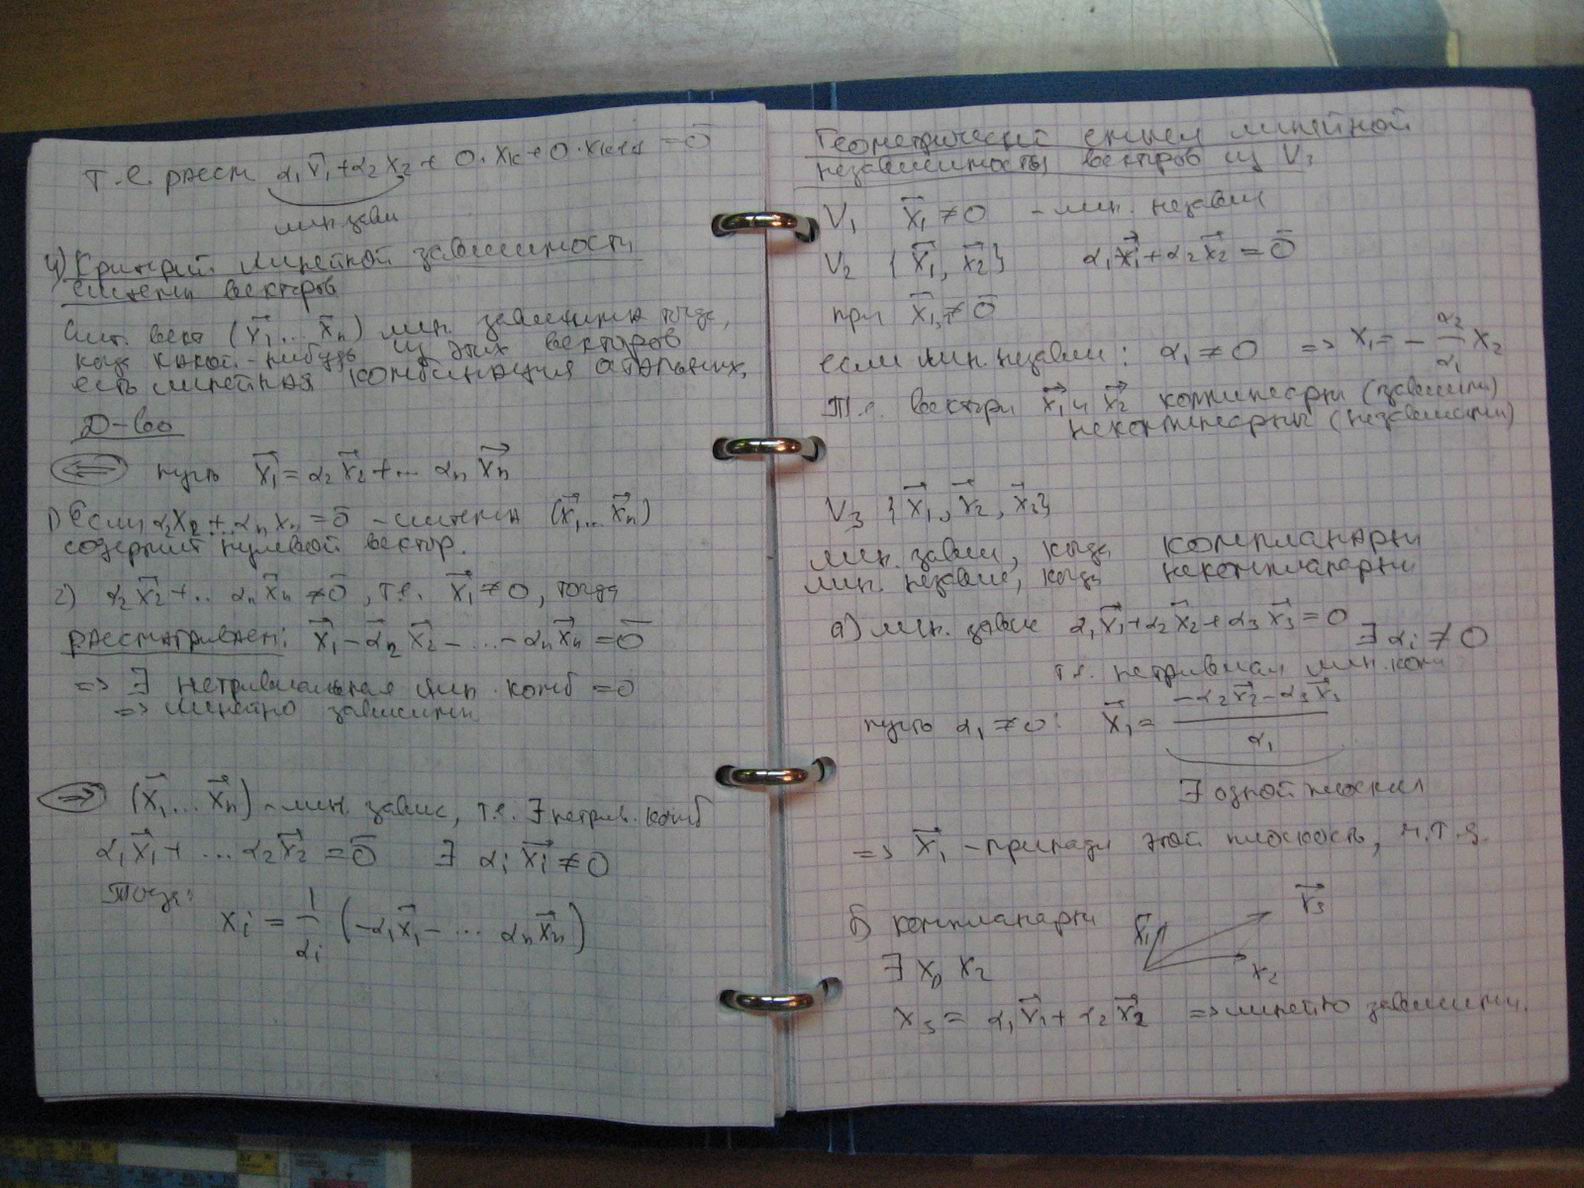 т.е. рассм α₁x̄₁+α₂x₂+ 0·xₖ+0·xₖ₊₁ = 0̄
лин. завис
4) Критерий линейной зависимости
системы векторов
Сист. вект (x⃗₁... x⃗ₙ) лин. зависима тогда,
когда какой-нибудь из этих векторов
есть линейная комбинация остальных.
Д-во
⇐ пусть x⃗₁ = α₂x⃗₂+... αₙx⃗ₙ
1) Если α₂x₂+αₙxₙ = 0̄ - система (x⃗₁... x⃗ₙ)
содержит нулевой вектор.
2) α₂x⃗₂+... αₙx⃗ₙ ≠ 0̄, т.е. x⃗₁ ≠ 0, тогда
рассматриваем: x⃗₁ - α₂ x⃗₂ - ... - αₙx⃗ₙ = 0̄
=> ∃ нетривиальная лин. комб = 0
=> линейно зависимы
⇒ (x⃗₁... x⃗ₙ) - лин. завис, т.е. ∃ нетрив. комб
α₁x⃗₁+ ... α₂x⃗₂ = 0̄ ∃ αᵢ x⃗ᵢ ≠ 0
Тогда:
xᵢ = 1/αᵢ (-α₁x⃗₁ - ... αₙx⃗ₙ)
Геометрический смысл линейной
независимости векторов из V₃
V₁ x̄₁ ≠ 0 - лин. независ
V₂ {x⃗₁, x⃗₂} α₁x⃗₁+α₂x⃗₂ = 0̄
при x̄₁ ≠ 0̄
если лин. независ: α₁ ≠ 0 => x₁ = - α₂/α₁ x₂
Т.е. векторы x⃗₁ и x⃗₂ коллинеарны (зависимы)
неколлинеарны (независимы)
V₃ {x⃗₁, x⃗₂, x⃗₃}
лин. завис, когда компланарны
лин. независ, когда некомпланарны
а) лин. завис α₁x⃗₁+α₂x⃗₂+α₃x⃗₃ = 0 ∃ αᵢ ≠ 0
т.е. нетривиал лин. комб
пусть α₁ ≠ 0: x⃗₁ = (-α₂x⃗₂-α₃x⃗₃)/α₁
∃ одной плоскости
=> x⃗₁ - принадл этой плоскость, ч.т.д.
б компланарны x̄₁ x⃗₃
∃ x₁, x₂ x₂
x₃ = α₁x⃗₁+α₂x⃗₂ => линейно зависимы.